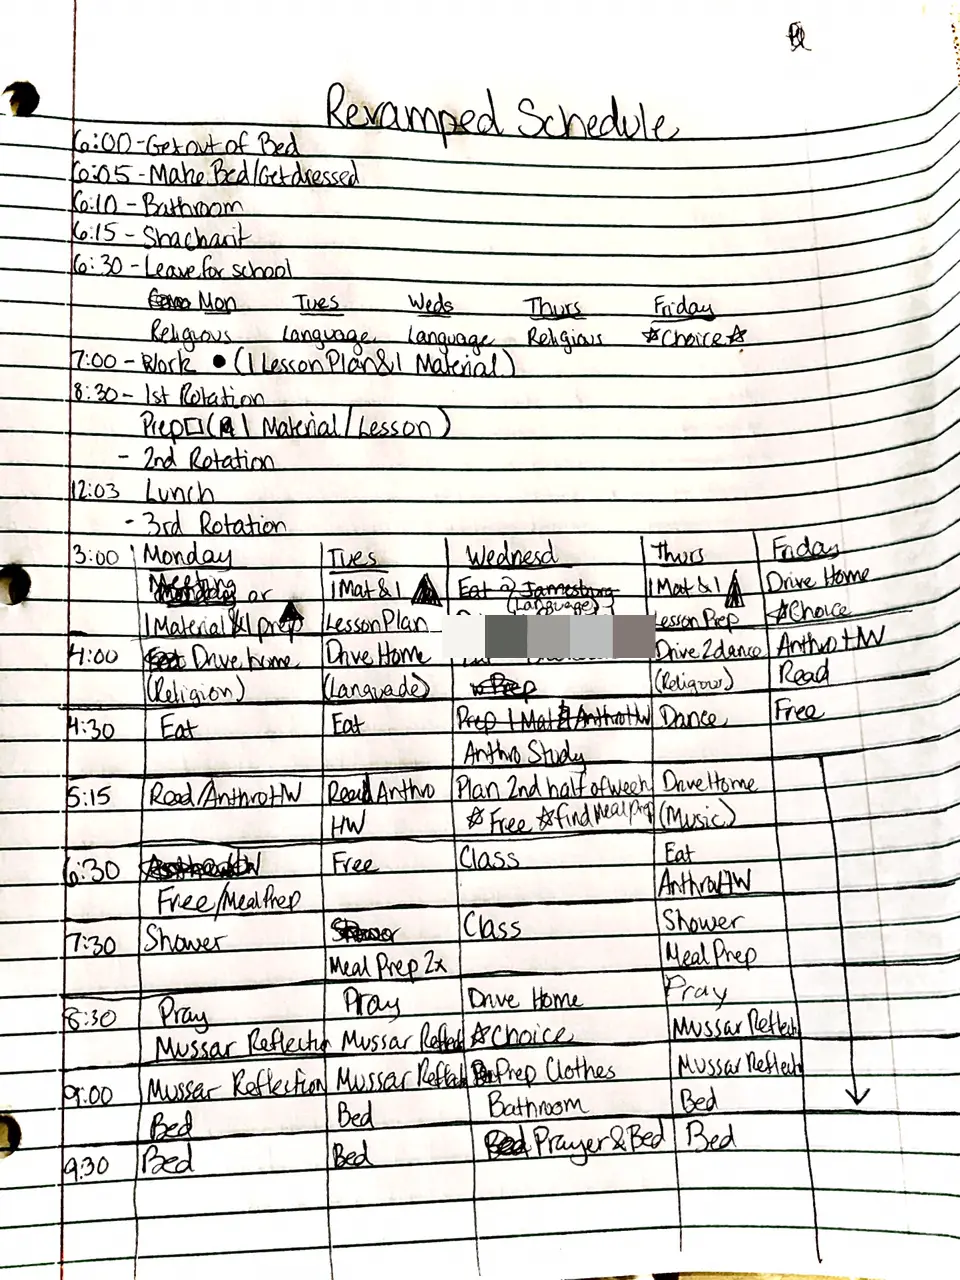 Revamped Schedule
6:00 - Get out of Bed
6:05 - Make Bed/Get dressed
6:10 - Bathroom
6:15 - Shacharit
6:30 - Leave for school
Mon Tues Weds Thurs Friday
Religious Language Language Religious ☆Choice☆
7:00 - Work ● (1 Lesson Plan & 1 Material)
8:30 - 1st Rotation
Prep□ (1 Material/Lesson)
- 2nd Rotation
12:03 Lunch
- 3rd Rotation
3:00 Monday Tues Wednesd Thurs Friday
Meeting or 1 Mat & 1 Eat @ Jamesburg 1 Mat & 1 Drive Home
(Language)
1 Material & 1 prep Lesson Plan Lesson Prep ☆Choice
4:00 Drive home Drive Home Drive 2 dance Anthro HW
(Religion) (Language) Prep (Religous) Read
4:30 Eat Eat Prep 1 Mat & Anthro HW Dance Free
Anthro Study
5:15 Read/Anthro HW Read Anthro Plan 2nd half of week Drive Home
HW ☆Free ☆find Meal Prep (Music)
6:30 Anthro HW Free Class Eat
Free/Meal Prep Anthro HW
7:30 Shower Shower Class Shower
Meal Prep 2x Meal Prep
8:30 Pray Pray Drive Home Pray
Mussar Reflection Mussar Reflect ☆Choice Mussar Reflect
9:00 Mussar Reflection Mussar Reflect Prep Clothes Mussar Reflect
Bed Bed Bathroom Bed
9:30 Bed Bed Bed Prayer & Bed Bed